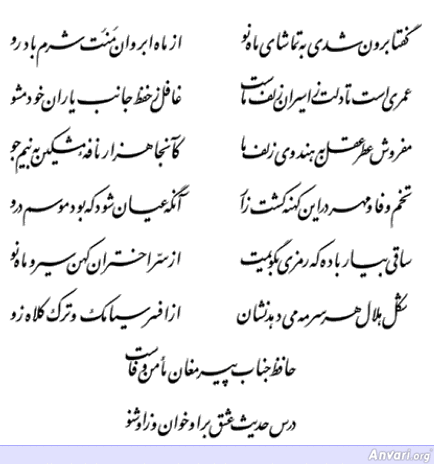 گفتا برون شدی به تماشای ماه نو از ماه ابروان منت شرم باد رو
عمریست تا دلت ز اسیران زلف ماست غافل ز حفظ جانب یاران خود مشو
مفروش عطر عقل به هندوی زلف ما کآنجا هزار نافه مشکین به نیم جو
تخم وفا و مهر در این کهنه کشت زار آنگه عیان شود که بود موسم درو
ساقی بیار باده که رمزی بگویمت از سر اختران کهن سیر و ماه نو
شکل هلال هر سر مه می دهد نشان از افسر سیامک و ترک کلاه زو
حافظ جناب پیر مغان مأمن وفاست
درس حدیث عشق بر او خوان و ز او شنو
Anvari.org